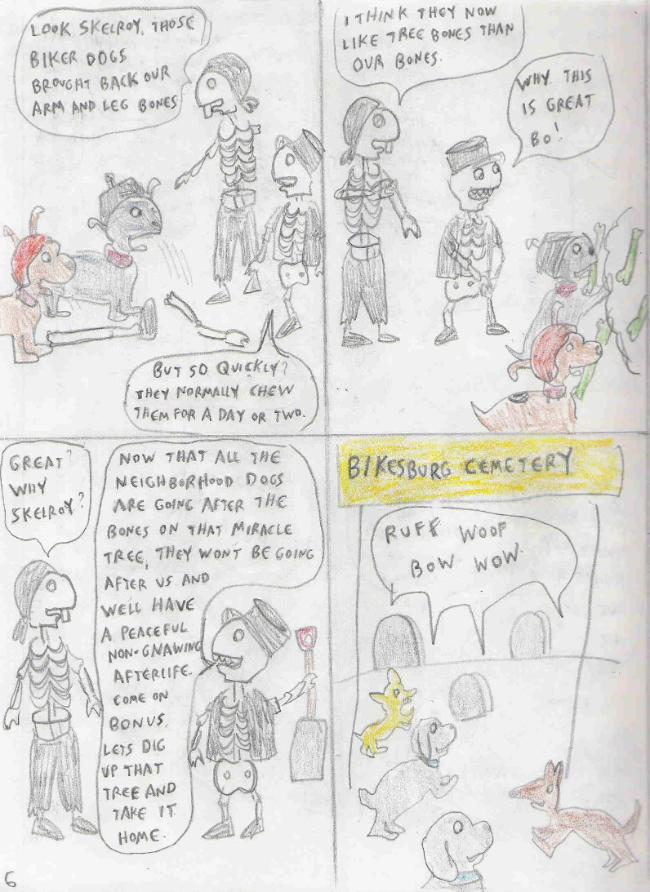 LOOK SKELROY, THOSE
BIKER DOGS
BROUGHT BACK OUR
ARM AND LEG BONES
BUT SO QUICKLY?
THEY NORMALLY CHEW
THEM FOR A DAY OR TWO.
I THINK THEY NOW
LIKE TREE BONES THAN
OUR BONES.
WHY THIS
IS GREAT
BO!
GREAT?
WHY
SKELROY?
NOW THAT ALL THE
NEIGHBORHOOD DOGS
ARE GOING AFTER THE
BONES ON THAT MIRACLE
TREE, THEY WONT BE GOING
AFTER US AND
WELL HAVE
A PEACEFUL
NON-GNAWING
AFTERLIFE.
COME ON
BONUS.
LETS DIG
UP THAT
TREE AND
TAKE IT
HOME.
BIKESBURG CEMETERY
RUFF WOOF
BOW WOW.
6